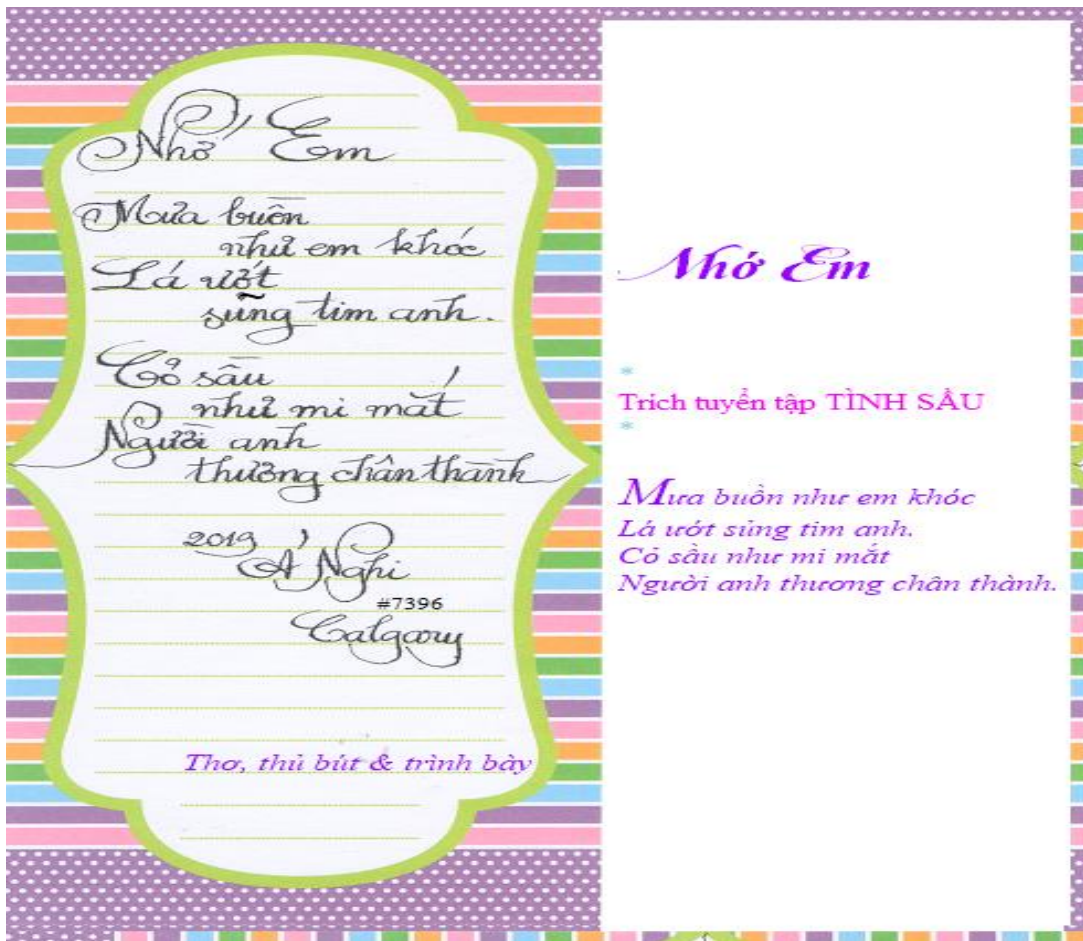 Nhớ Em
Mưa buồn
như em khóc
Lá ướt
sũng tim anh.
Cỏ sầu
như mi mắt
Người anh
thương chân thành
2019
Á Nghi
#7396
Calgary
Thơ, thủ bút & trình bày
Nhớ Em
*
Trích tuyển tập TÌNH SẦU
*
Mưa buồn như em khóc
Lá ướt sủng tim anh.
Cỏ sầu như mi mắt
Người anh thương chân thành.